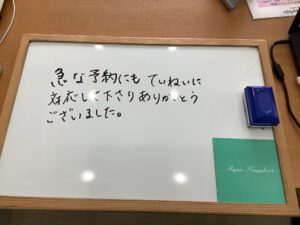 急な予約にも ていねいに
対応して下さりありがとう
ございました。
Aqua Sapphire